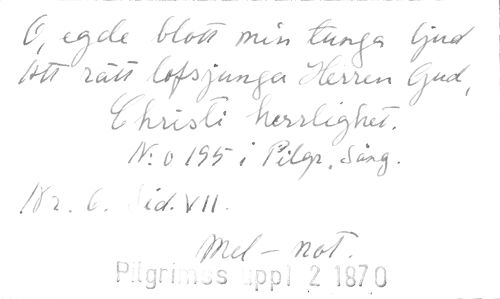 O, egde blott min tunga ljud
Att rätt lofsjunga Herren Gud,
Christi herrlighet.
N:o 195 i Pilgr. Sång.
Nr. 6. Sid. VII.
Mel-not.
Pilgrimss uppl 2 1870